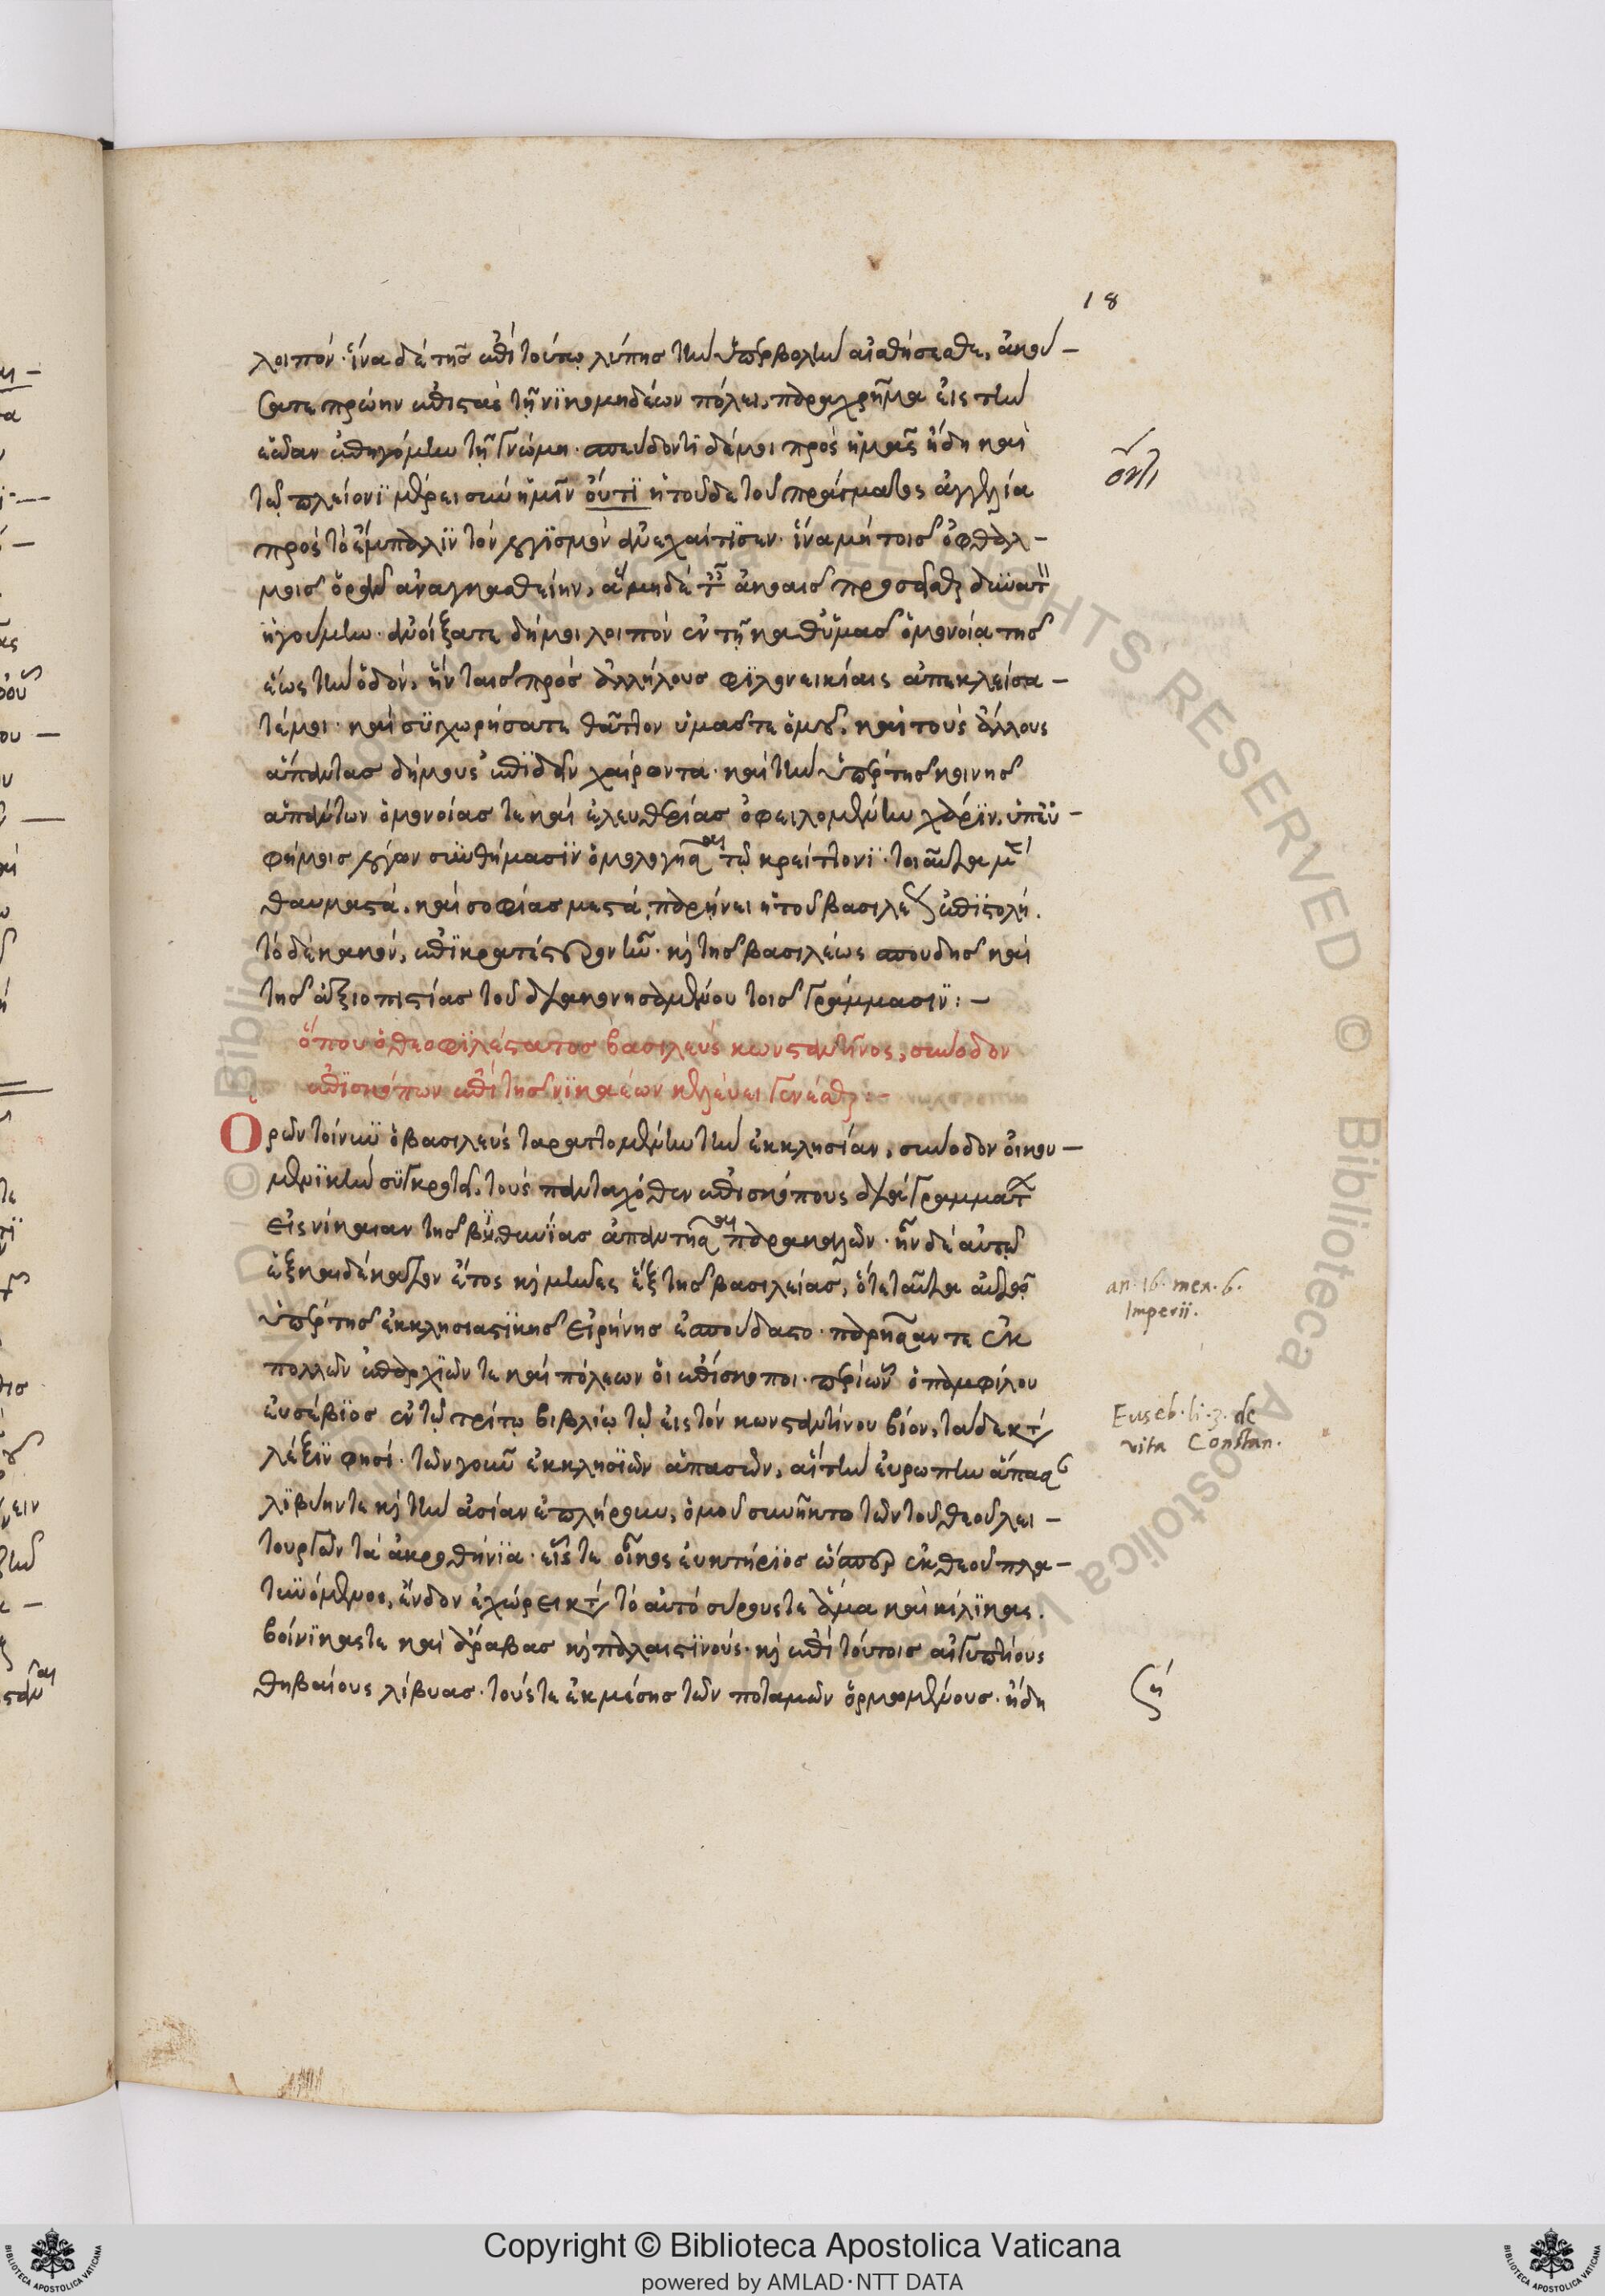 18
λοιπόν· ἵνα δὲ τῆς ἐπὶ τούτῳ λύπης τὴν ὑπερβολὴν αἰσθήσεσθε, ἀκού-
σατε πρώην ἐπιστὰς τῇ νικομηδέων πόλει, παραχρῆμα εἰς τὴν
ἑῴαν ἠπειγόμην τῇ γνώμῃ· σπεύδοντι δέ μοι πρὸς ὑμᾶς ἤδη καὶ
τῷ πλείονι μέρει σὺν ὑμῖν οὔτι ἡ τοῦδε τοῦ πράγματος ἀγγελία
ὄντι
πρὸς τὸ ἔμπαλιν τὸν λογισμὸν ἀνεχαίτισεν· ἵνα μὴ τοῖς ὀφθαλ-
μοῖς ὁρᾶν ἀναγκασθείην, ἃ μηδὲ ταῖς ἀκοαῖς προσέσθαι δυνατὸν
ἡγούμην· ἀνοίξατε δή μοι λοιπὸν ἐν τῇ καθ' ὑμᾶς ὁμονοίᾳ τῆς
ἑῴας τὴν ὁδόν, ἣν ταῖς πρὸς ἀλλήλους φιλονεικίαις ἀπεκλείσα-
τέ μοι· καὶ συγχωρήσατε θᾶττον ὑμᾶς τε ὁμοῦ, καὶ τοὺς ἄλλους
ἅπαντας δήμους ἐπιδεῖν χαίροντα· καὶ τὴν ὑπὲρ τῆς κοινῆς
ἁπάντων ὁμονοίας τε καὶ ἐλευθερίας ὀφειλομένην χάριν, ὑπ' εὐ-
φήμοις λόγων συνθήμασιν ὁμολογῆσαι τῷ κρείττονι· τοιαῦτα μὲν
θαυμαστὰ, καὶ σοφίας μεστὰ, παρῄνει ἡ τοῦ βασιλέως ἐπιστολή.
τὸ δὲ κακόν, ἐπικρατέστερον ἦν· καὶ τῆς βασιλέως σπουδῆς καὶ
τῆς ἀξιοπιστίας τοῦ διακονησαμένου τοῖς γράμμασιν: -
ὅπου ὁ θεοφιλέστατος βασιλεὺς κωνσταντῖνος, σύνοδον
ἐπισκόπων ἐπὶ τῆς νικαέων κελεύει γενέσθαι: -
Ὁρῶν τοίνυν ὁ βασιλεὺς ταραττομένην τὴν ἐκκλησίαν, σύνοδον οἰκου-
μενικὴν συγκροτεῖ, τοὺς πανταχόθεν ἐπισκόπους διὰ γραμμάτων
εἰς νίκαιαν τῆς βιθυνίας ἀπαντῆσαι παρακαλῶν· ἦν δὲ αὐτῷ
ἑξκαιδέκατον ἔτος καὶ μῆνες ἓξ τῆς βασιλείας, ὅτε ταῦτα αὐτῷ
an. 16. men. 6.
Imperii.
ὑπὲρ τῆς ἐκκλησιαστικῆς εἰρήνης ἐσπούδαστο· παρῆσάν τε ἐκ
πολλῶν ἐπαρχιῶν τε καὶ πόλεων οἱ ἐπίσκοποι· περὶ ὧν ὁ παμφίλου
εὐσέβιος ἐν τῷ τρίτῳ βιβλίῳ τῷ εἰς τὸν κωνσταντίνου βίον, τάδε κατὰ
Euseb. li. 3. de
vita Constan.
λέξιν φησί· τῶν γοῦν ἐκκλησιῶν ἁπασῶν, αἳ τὴν εὐρώπην ἅπασαν
λιβύην τε καὶ τὴν ἀσίαν ἐπλήρουν, ὁμοῦ συνῆκτο τῶν τοῦ θεοῦ λει-
τουργῶν τὰ ἀκροθίνια· εἷς τε οἶκος εὐκτήριος ὥσπερ ἐκ θεοῦ πλα-
τυνόμενος, ἔνδον ἐχώρει κατὰ τὸ αὐτὸ σύρους τε ἅμα καὶ κίλικας.
φοίνικάς τε καὶ ἄραβας καὶ παλαιστινούς· καὶ ἐπὶ τούτοις αἰγυπτίους
θηβαίους λίβυας· τούς τε ἐκ μέσης τῶν ποταμῶν ὁρμωμένους· ἤδη